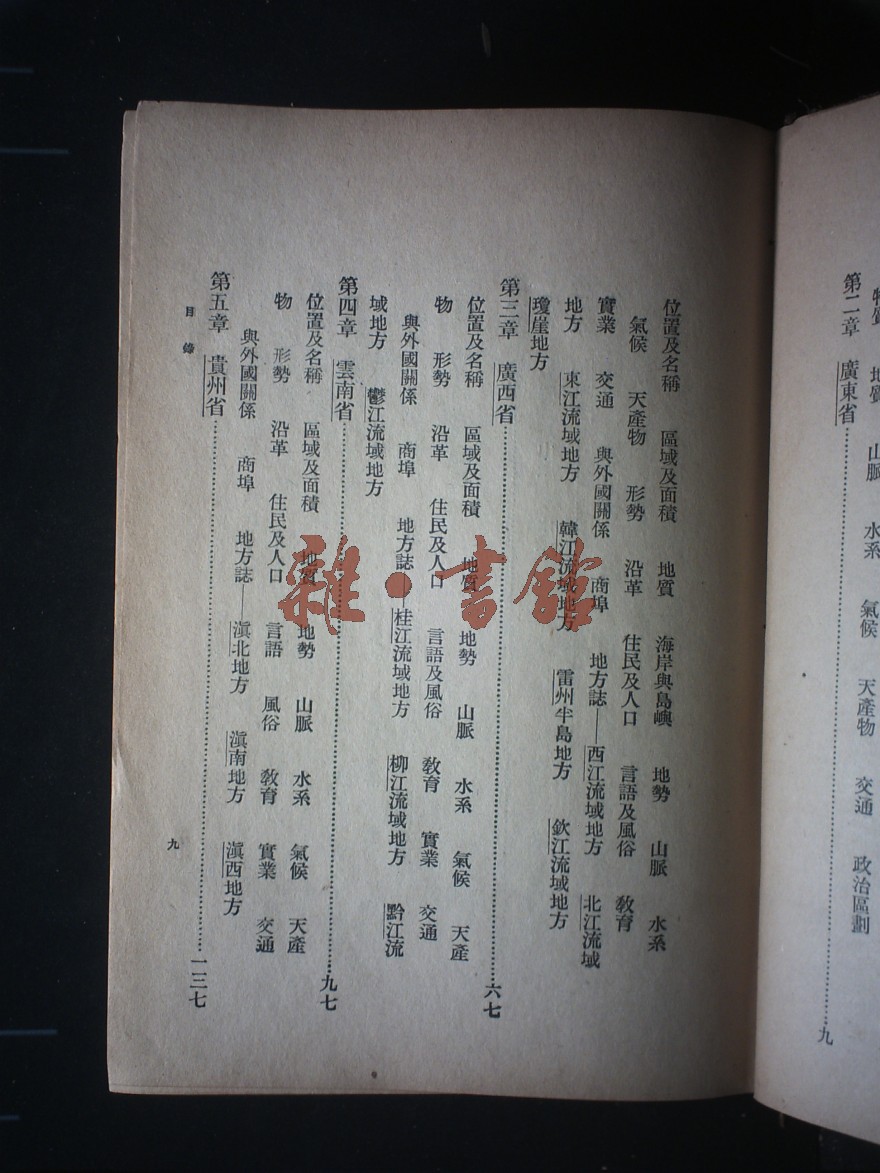 地質 山脈 水系 氣候 天產物 交通 政治區劃
第二章 廣東省……九
位置及名稱 區域及面積 地質 海岸與島嶼 地勢 山脈 水系
氣候 天產物 形勢 沿革 住民及人口 言語及風俗 教育
實業 交通 與外國關係 商埠 地方誌——西江流域地方 北江流域
地方 東江流域地方 韓江流域地方 雷州半島地方 欽江流域地方
瓊崖地方
第三章 廣西省……六七
位置及名稱 區域及面積 地質 地勢 山脈 水系 氣候 天產
物 形勢 沿革 住民及人口 言語及風俗 敎育 實業 交通
與外國關係 商埠 地方誌——桂江流域地方 柳江流域地方 黔江流
域地方 鬱江流域地方
第四章 雲南省……九七
位置及名稱 區域及面積 地質 地勢 山脈 水系 氣候 天產
物 形勢 沿革 住民及人口 言語 風俗 敎育 實業 交通
與外國關係 商埠 地方誌——滇北地方 滇南地方 滇西地方
第五章 貴州省……一三七
目錄
九
雜·書館